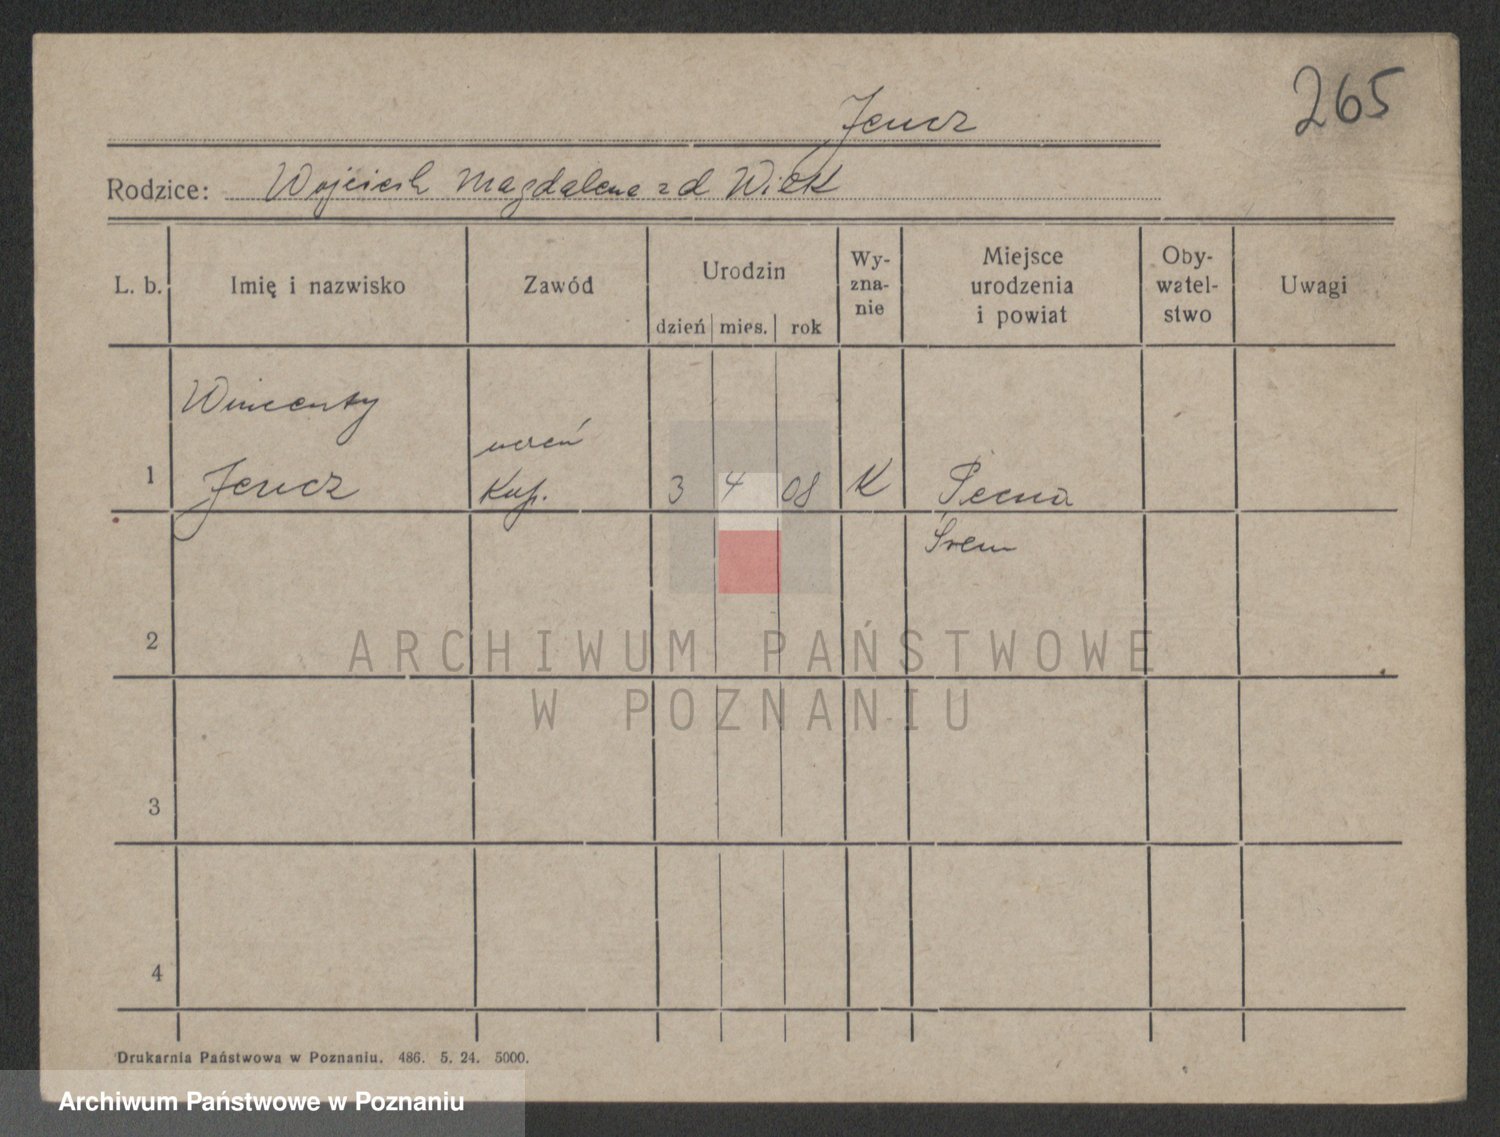 265
Jerucz
Rodzice: Wojciech Magdalena z d Wilk
L. b. Imię i nazwisko Zawód Urodzin dzień mies. rok Wy-zna-nie Miejsce urodzenia i powiat Oby-watel-stwo Uwagi
Wincenty
uczeń
1 Jerucz Kup. 3 4 08 K Pecna
Śrem
2
ARCHIWUM PAŃSTWOWE
W POZNANIU
3
4
Drukarnia Państwowa w Poznaniu. 486. 5. 24. 5000.
Archiwum Państwowe w Poznaniu